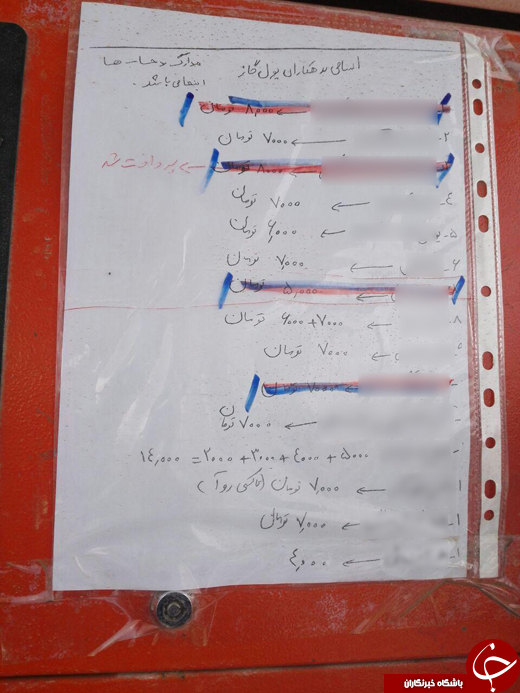 اسامی بدهکاران پول گاز
مدارک و حساب ها
اینجا می باشد.
۸,۰۰۰ تومان
۲- ۷۰۰۰ تومان
۸,۰۰۰ تومان پرداخت شد
۴- ۷۰۰۰ تومان
۵- ۶,۰۰۰ تومان
۶- ۷,۰۰۰ تومان
۵,۰۰۰ تومان
۸- ۶۰۰۰+۷۰۰۰ تومان
۷۰۰۰ تومان
۷,۰۰۰ تومان
۷۰۰۰ تومان
۱۴,۰۰۰ = ۲۰۰۰ + ۳۰۰۰ + ۴۰۰۰ + ۵۰۰۰
۷,۰۰۰ تومان (تاکسی رو آ)
۷,۰۰۰ تومانی
۴,۰۰۰
باشگاه خبرنگاران